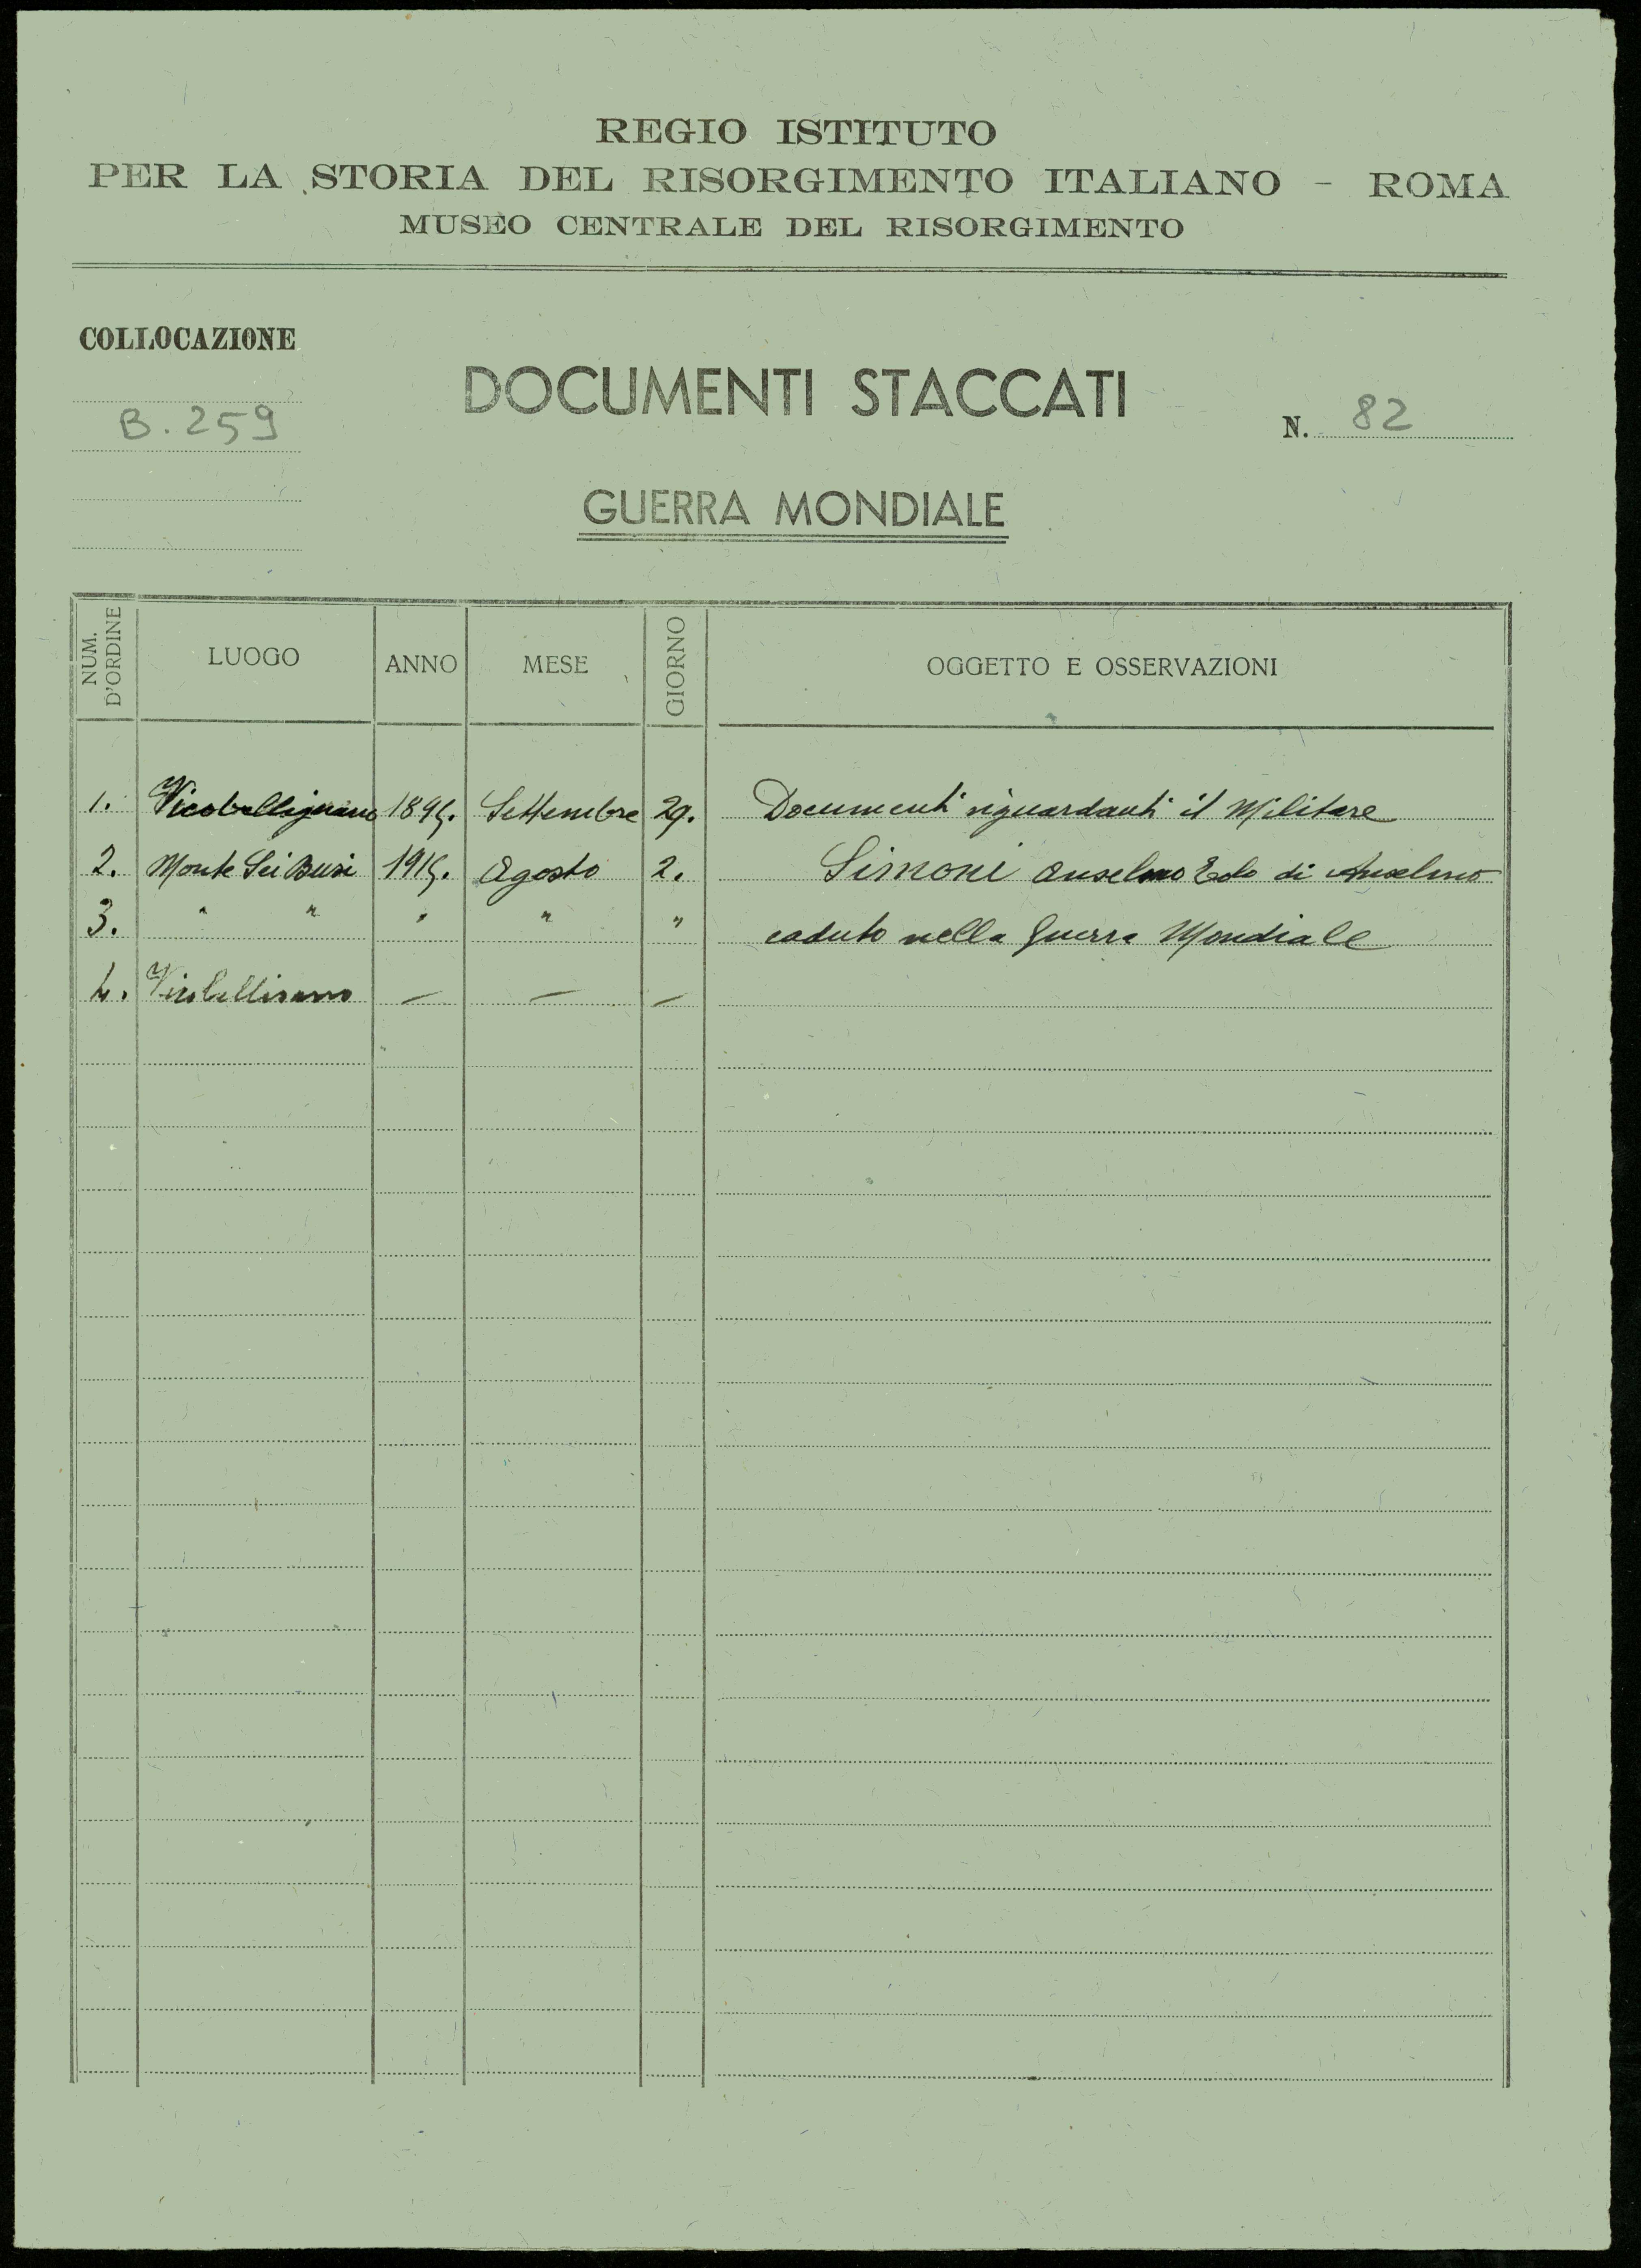 REGIO ISTITUTO
PER LA STORIA DEL RISORGIMENTO ITALIANO - ROMA
MUSEO CENTRALE DEL RISORGIMENTO
COLLOCAZIONE
B. 259
DOCUMENTI STACCATI
N. 82
GUERRA MONDIALE
NUM. D'ORDINE LUOGO ANNO MESE GIORNO OGGETTO E OSSERVAZIONI
1. Vicobellignano 1895. Settembre 29. Documenti riguardanti il Militare
2. Monte Sei Busi 1915. Agosto 2. Simoni Anselmo di Anselmo
3. " " " " " caduto nella Guerra Mondiale
4. — — —